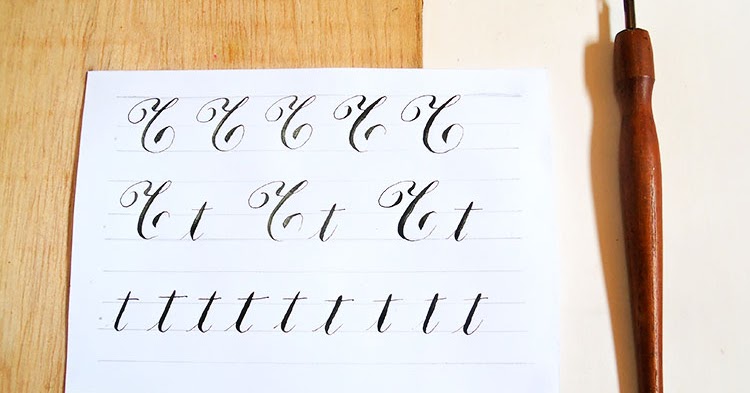 T T T T T
T t T t T t
t t t t t t t t t